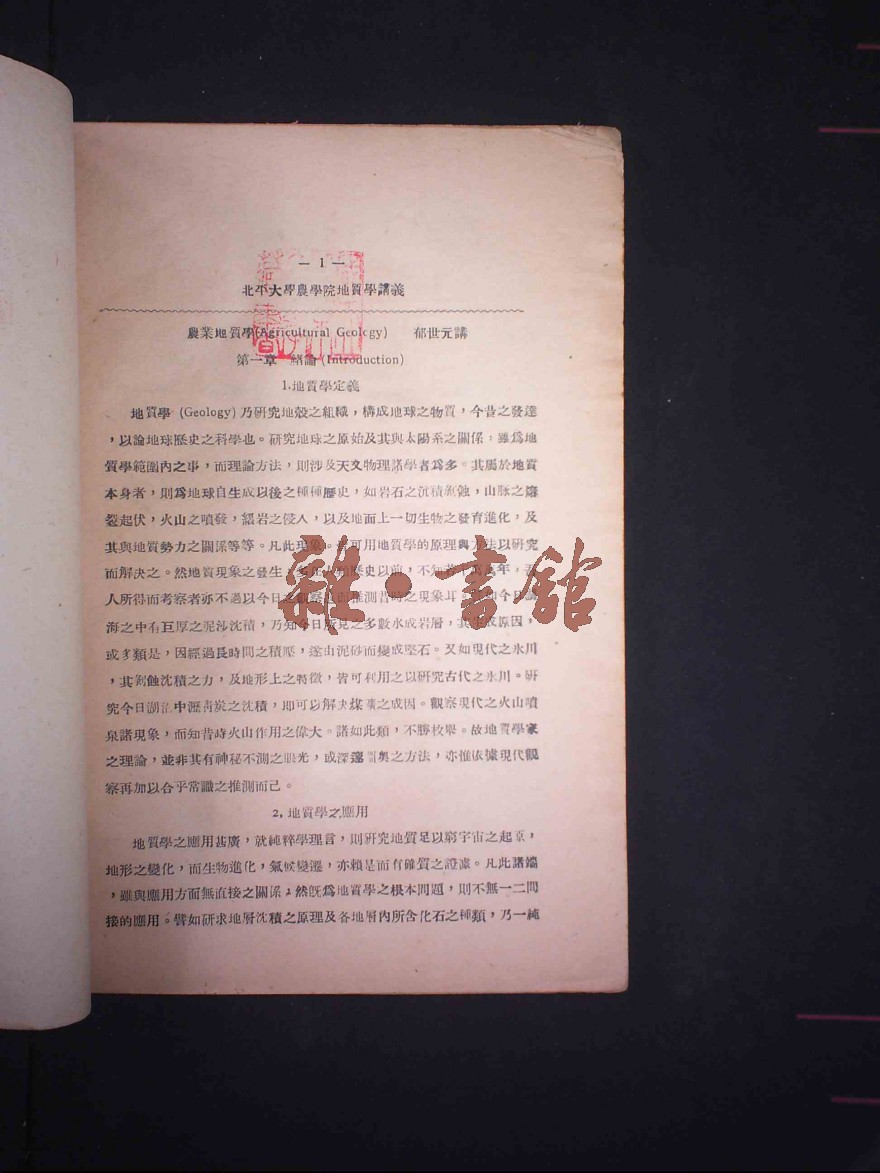 — 1 —
北平大學農學院地質學講義
農業地質學(Agricultural Geology) 郁世元講
第一章 緒論(Introduction)
1.地質學定義
地質學 (Geology) 乃研究地殼之組織，構成地球之物質，今昔之發達
，以論地球歷史之科學也。研究地球之原始及其與太陽系之關係，雖爲地
質學範圍內之事，而理論方法，則涉及天文物理諸學者爲多。其屬於地質
本身者，則爲地球自生成以後之種種歷史，如岩石之沉積剝蝕，山脉之
裂起伏，火山之噴發，岩之侵入，以及地面上一切生物之發育進化，及
其與地質勢力之關係等等。凡此現象。皆可用地質學的原理與方法以研究
而解決之。然地質現象之發生，多在人類歷史以前，不知若干萬年，吾
人所得而考察者亦不過以今日之觀察而推測昔時之現象耳。今日
海之中有巨厚之泥沙沈積，乃知今日所見之多數水成岩層，其生成原因，
或多類是，因經過長時間之積壓，遂由泥砂而變成堅石。又如現代之氷川
，其剝蝕沈積之力，及地形上之特徵，皆可利用之以研究古代之氷川。研
究今日湖沼中瀝靑炭之沈積，即可以解决煤礦之成因。觀察現代之火山噴
泉諸現象，而知昔時火山作用之偉大。諸如此類，不勝枚舉。故地質學家
之理論，並非其有神秘不測之眼光，或深邃奧之方法，亦惟依據現代觀
察再加以合乎常識之推測而己。
2. 地質學之應用
地質學之應用甚廣，就純粹學理言，則研究地質足以窮宇宙之起原，
地形之變化，而生物進化，氣候變遷，亦賴是而有確實之證據。凡此諸端
，雖與應用方面無直接之關係，然旣爲地質學之根本問題，則不無一二間
接的應用。譬如研求地層沈積之原理及各地層內所含化石之種類，乃一純
雜·書館